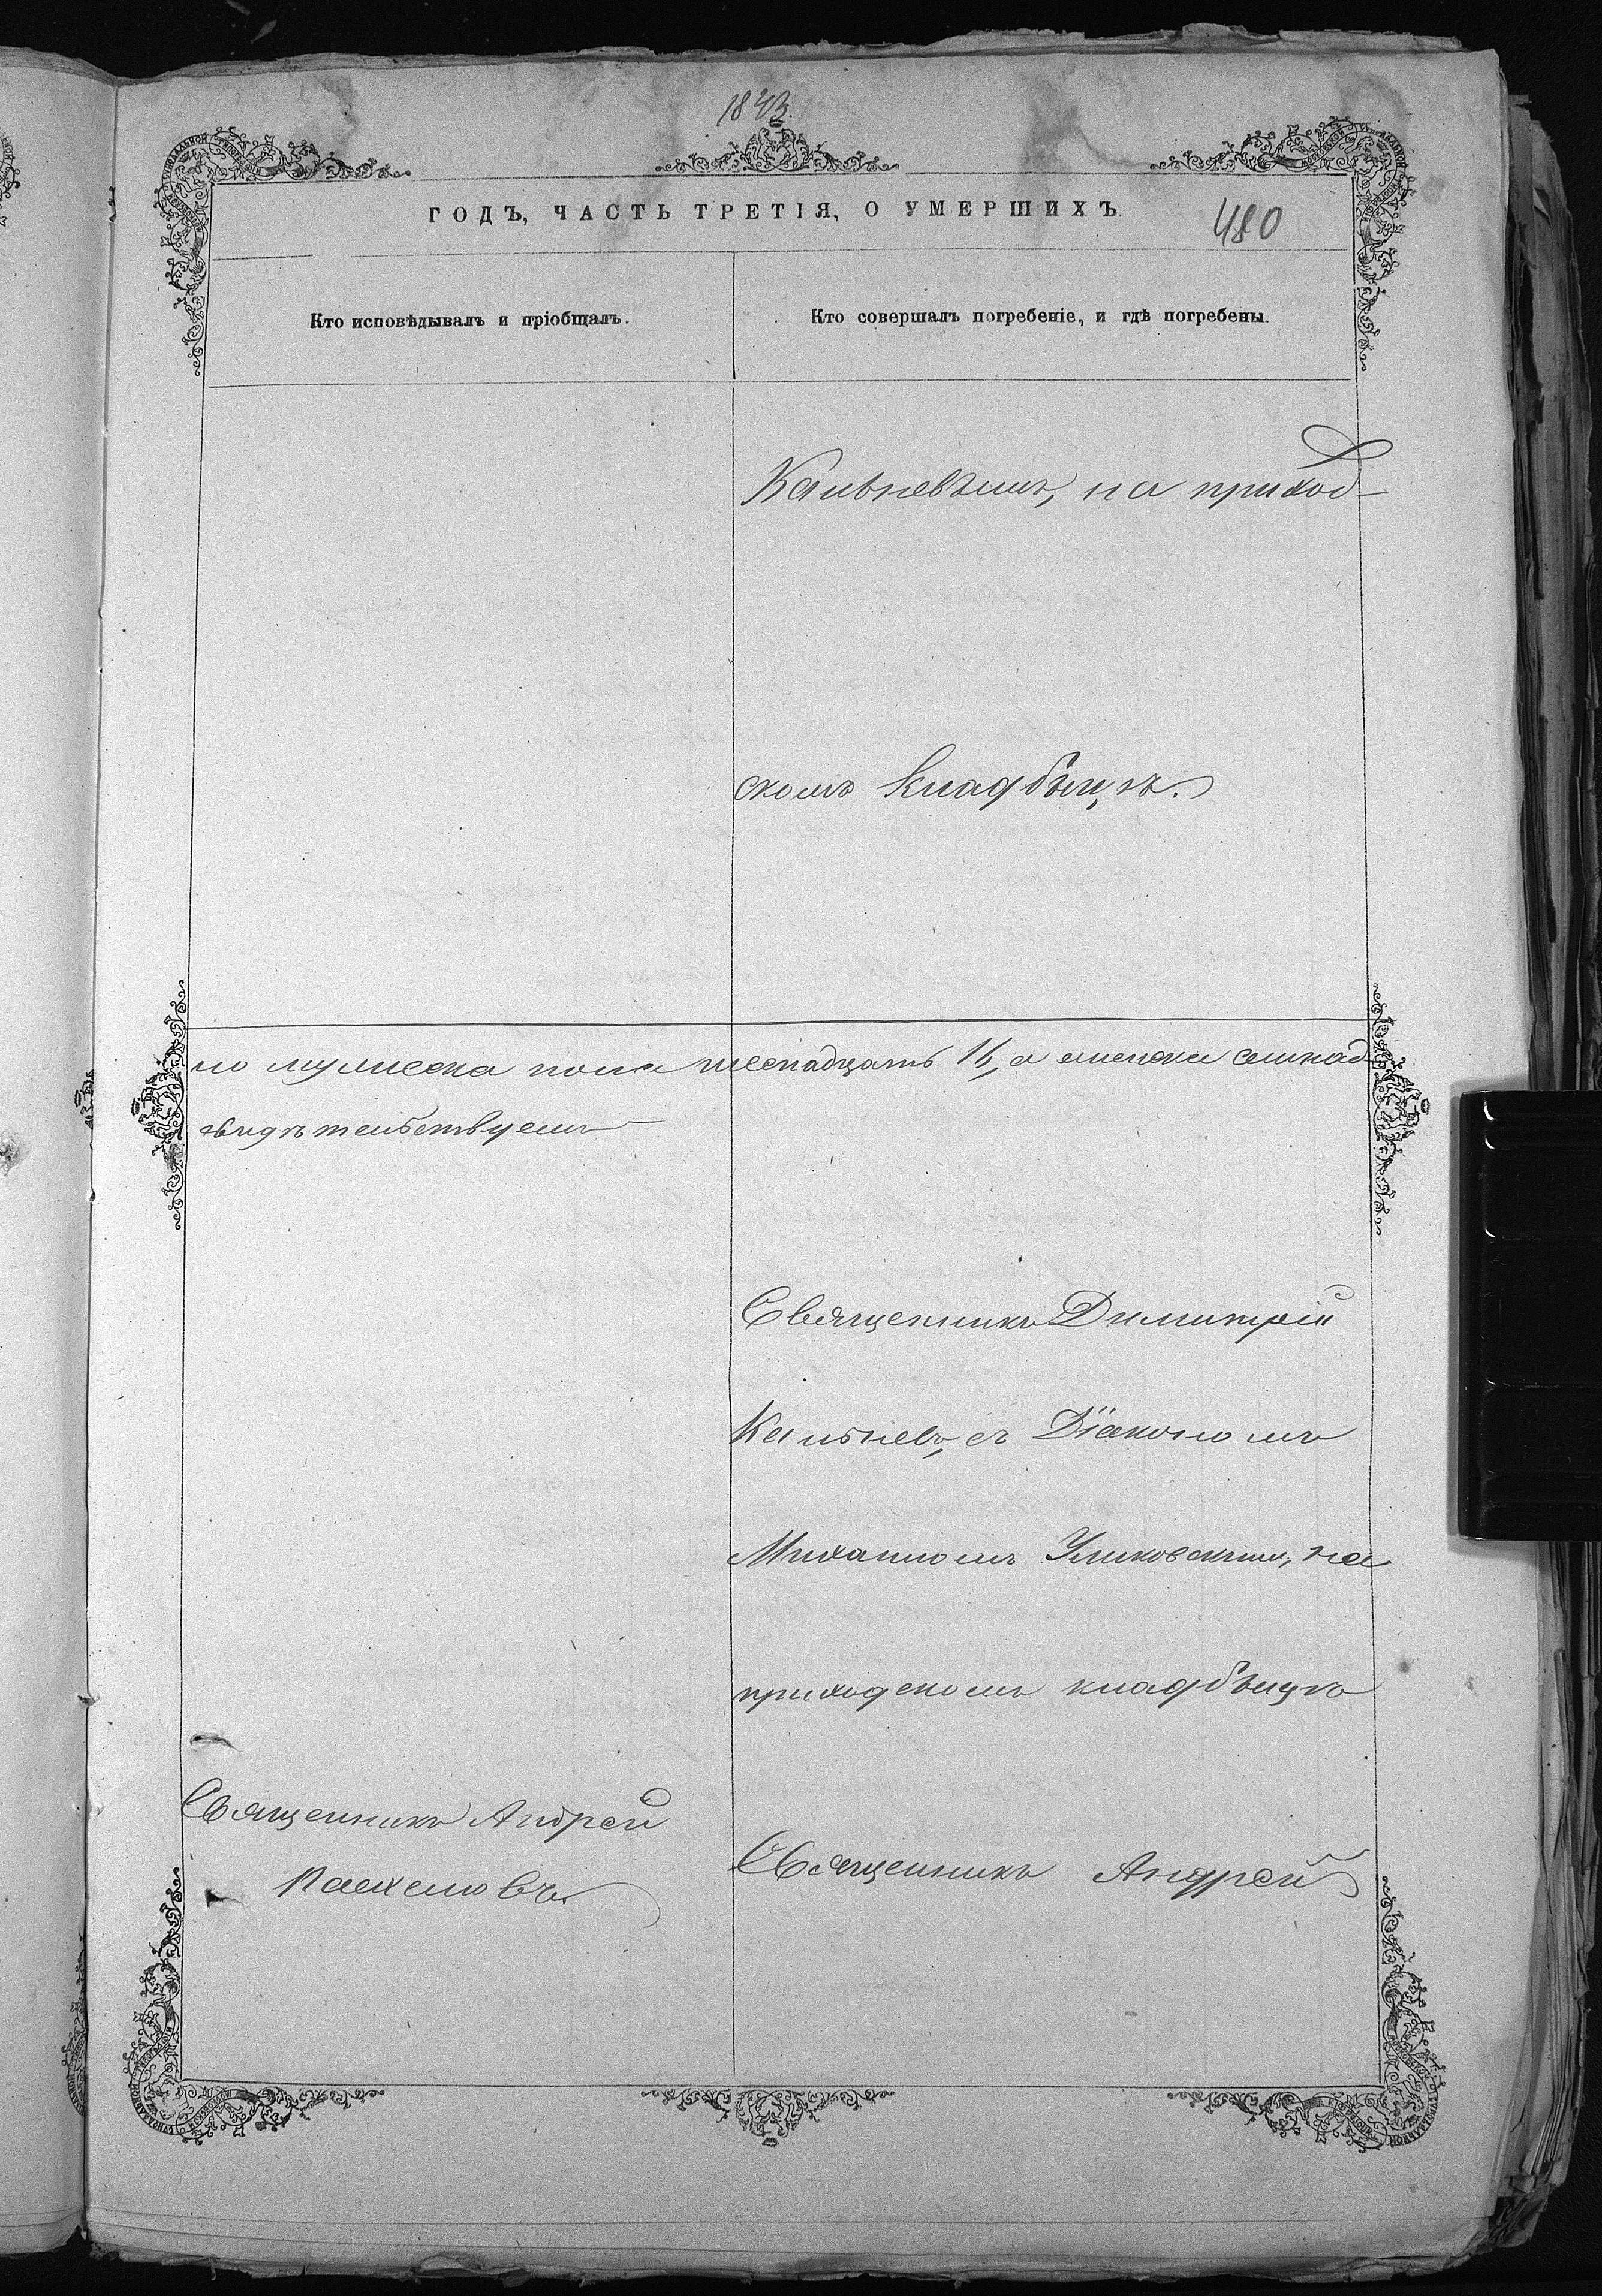 1873.
ГОДЪ, ЧАСТЬ ТРЕТІЯ, О УМЕРШИХЪ.
480
Кто исповѣдывалъ и пріобщалъ.
Кто совершалъ погребеніе, и гдѣ погребены.
Кальневымъ, на приход-
скомъ кладбыщѣ.
го мужеска пола шеснадцать 16, а женска семнад
свидѣтельствуемъ
Священникъ Димитрій
Кальневъ, съ Діакономъ
Михаиломъ на
приходскомъ кладбыщѣ
Священникъ Андрей
Пасхаловъ.
Священникъ Андрей